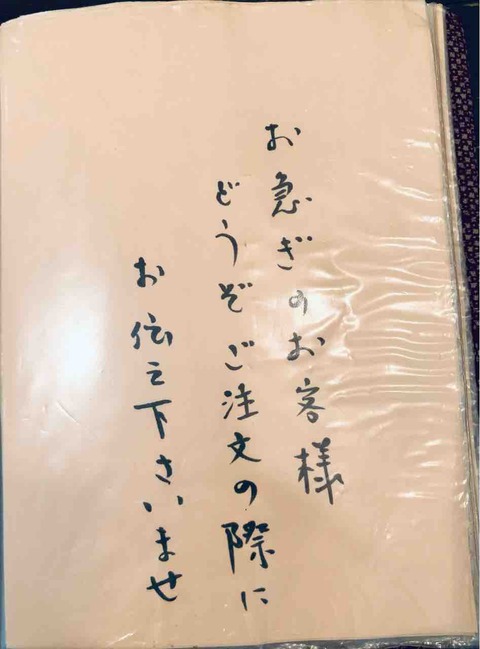 お急ぎのお客様
どうぞご注文の際に
お伝え下さいませ